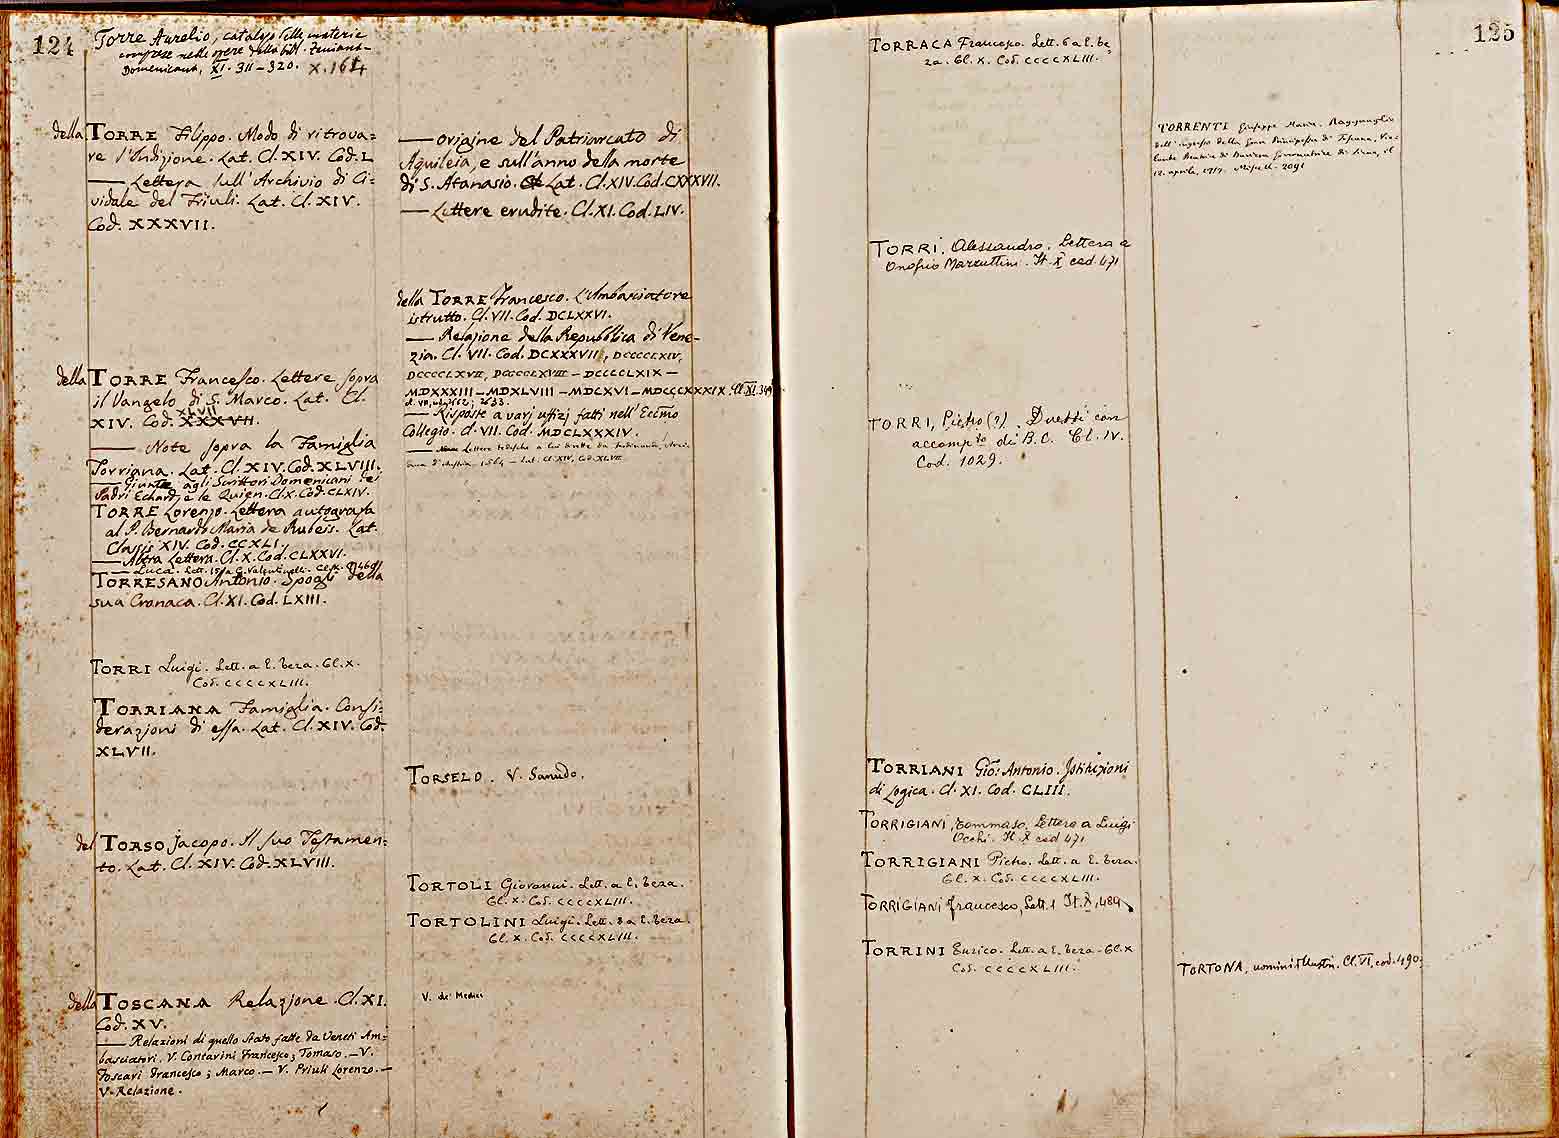 124
Torre Aurelio, catalogo delle materie
comprese nelle opere della bibl. Zeniana-
Domenicana, XI. 311-320. X.164
della TORRE Filippo. Modo di ritrova=
re l'Indizione. Lat. Cl. XIV. Cod. L
— Lettera sull'Archivio di Ci=
vidale del Friuli. Lat. Cl. XIV.
Cod. XXXVII.
della TORRE Francesco. Lettere sopra
il Vangelo di S. Marco. Lat. Cl.
XLVII
XIV. Cod. XXXVII.
— Note sopra la Famiglia
Torriana. Lat. Cl. XIV. Cod. XLVIII.
— Giunte agli Scrittori Domenicani dei
Padri Echard, e le Quien. Cl. X. Cod. CLXIV.
TORRE Lorenzo. Lettera autografa
al P. Bernardo Maria de Rubeis. Lat.
Classis XIV. Cod. CCXLI.
— Altra Lettera. Cl. X. Cod. CLXXVI.
— Luca. Lett. a G. Valentinelli.
TORRESANO Antonio. Spogli della
sua Cronaca. Cl. XI. Cod. LXIII.
TORRI Luigi. Lett. a E. Teza. Cl. X.
Cod. CCCCXLIII.
TORRIANA Famiglia. Consi=
derazioni di essa. Lat. Cl. XIV. Cod.
XLVII.
del TORSO Jacopo. Il suo Testamen=
to. Lat. Cl. XIV. Cod. XLVIII.
della TOSCANA Relazione. Cl. XI.
Cod. XV.
— Relazioni di quello Stato fatte da Veneti Am=
basciatori. V. Contarini Francesco; Tomaso. — V.
Foscari Francesco; Marco. — V. Priuli Lorenzo. —
V. Relazione.
— Origine del Patriarcato di
Aquileia, e sull'anno della morte
di S. Atanasio. Lat. Cl. XIV. Cod. CXXXVII.
— Lettere erudite. Cl. XI. Cod. LIV.
della TORRE Francesco. L'Ambasciatore
istrutto. Cl. VII. Cod. DCLXXVI.
— Relazione della Repubblica di Vene-
zia. Cl. VII. Cod. DCXXXVII, DCCCCLXIV,
DCCCCLXVII, DCCCCLXVIII — DCCCCLXIX —
MDXXXIII — MDXLVIII — MDCXVI — MDCCCXXXIX. Cl. XI. 349
— Risposte a varj uffizj fatti nell'Eccmo
Collegio. Cl. VII. Cod. MDCLXXXIV.
— Lettere tedesche a lui dirette da Ferdinando,
d'Austria, 1564 — Lat. Cl. XIV. Cod. XLVII
TORSELO. V. Sanudo.
TORTOLI Giovanni. Lett. a E. Teza.
Cl. X. Cod. CCCCXLIII.
TORTOLINI Luigi. Lett. 8 a E. Teza.
Cl. X. Cod. CCCCXLIII.
V. de' Medici
125
TORRACA Francesco. Lett. 6 a E. Te=
za. Cl. X. Cod. CCCCXLIII.
TORRI, Alessandro. Lettera a
Onofrio Marzuttini. It. X cod. 471
TORRI, Pietro (?). Duetti con
accompto di B. C. Cl. IV.
Cod. 1029.
TORRIANI Gio: Antonio. Istituzioni
di Logica. Cl. XI. Cod. CLIII.
TORRIGIANI, Tommaso. Lettera a Luigi
Occhi. It. X cod 471
TORRIGIANI Pietro. Lett. a E. Teza.
Cl. X. Cod. CCCCXLIII.
TORRIGIANI Francesco, Lett. 1 It. X, 484
TORRINI Enrico. Lett. a E. Teza. Cl. X
Cod. CCCCXLIII.
TORRENTI Giuseppe Maria. Ragguaglio
dell'ingresso della Gran Principessa di Toscana, Vio-
lante Beatrice di Baviera Governatrice di Siena, il
12. aprile, 1717. Miscell. 2091
TORTONA, uomini illustri. Cl. VI, cod. 490.